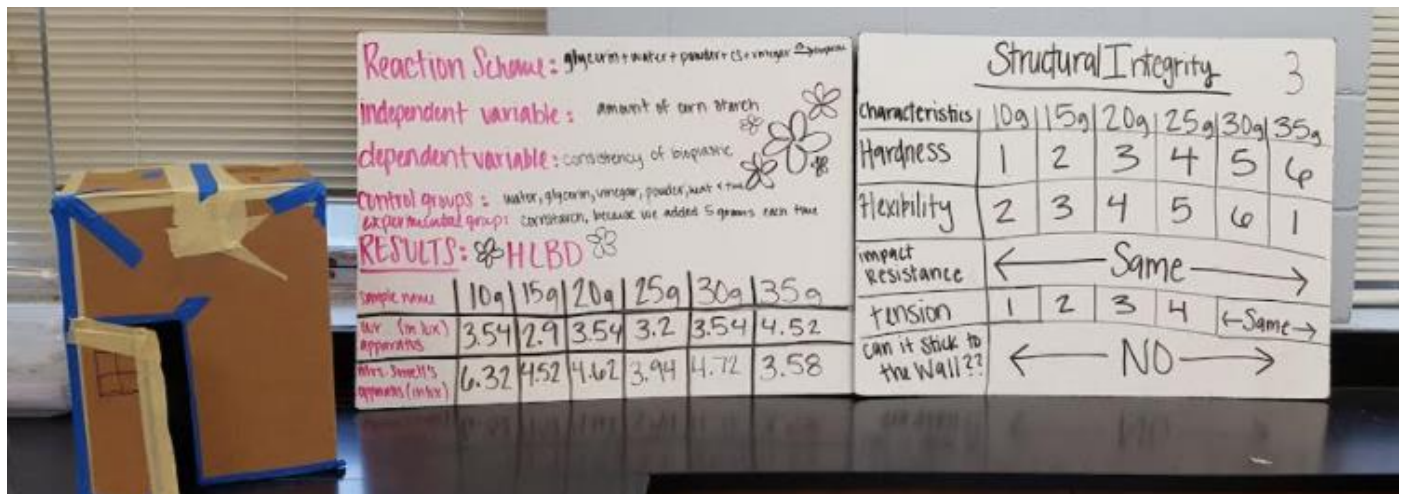 Reaction Scheme: glycerin + water + powder + CS + vinegar
independent variable: amount of corn starch
dependent variable: consistency of bioplastic
control groups: water, glycerin, vinegar, powder, heat + time
experimental group: cornstarch, because we added 5 grams each time
RESULTS: HLBD
sample name 10g 15g 20g 25g 30g 35g
our (in lux) apparatus 3.54 2.9 3.54 3.2 3.54 4.52
Mrs. apparatus (in lux) 6.32 4.52 4.62 3.94 4.72 3.58
Structural Integrity 3
Characteristics 10g 15g 20g 25g 30g 35g
Hardness 1 2 3 4 5 6
Flexibility 2 3 4 5 6 1
impact
Resistance ← Same →
tension 1 2 3 4 ←Same→
can it stick to
the Wall?? ← NO →